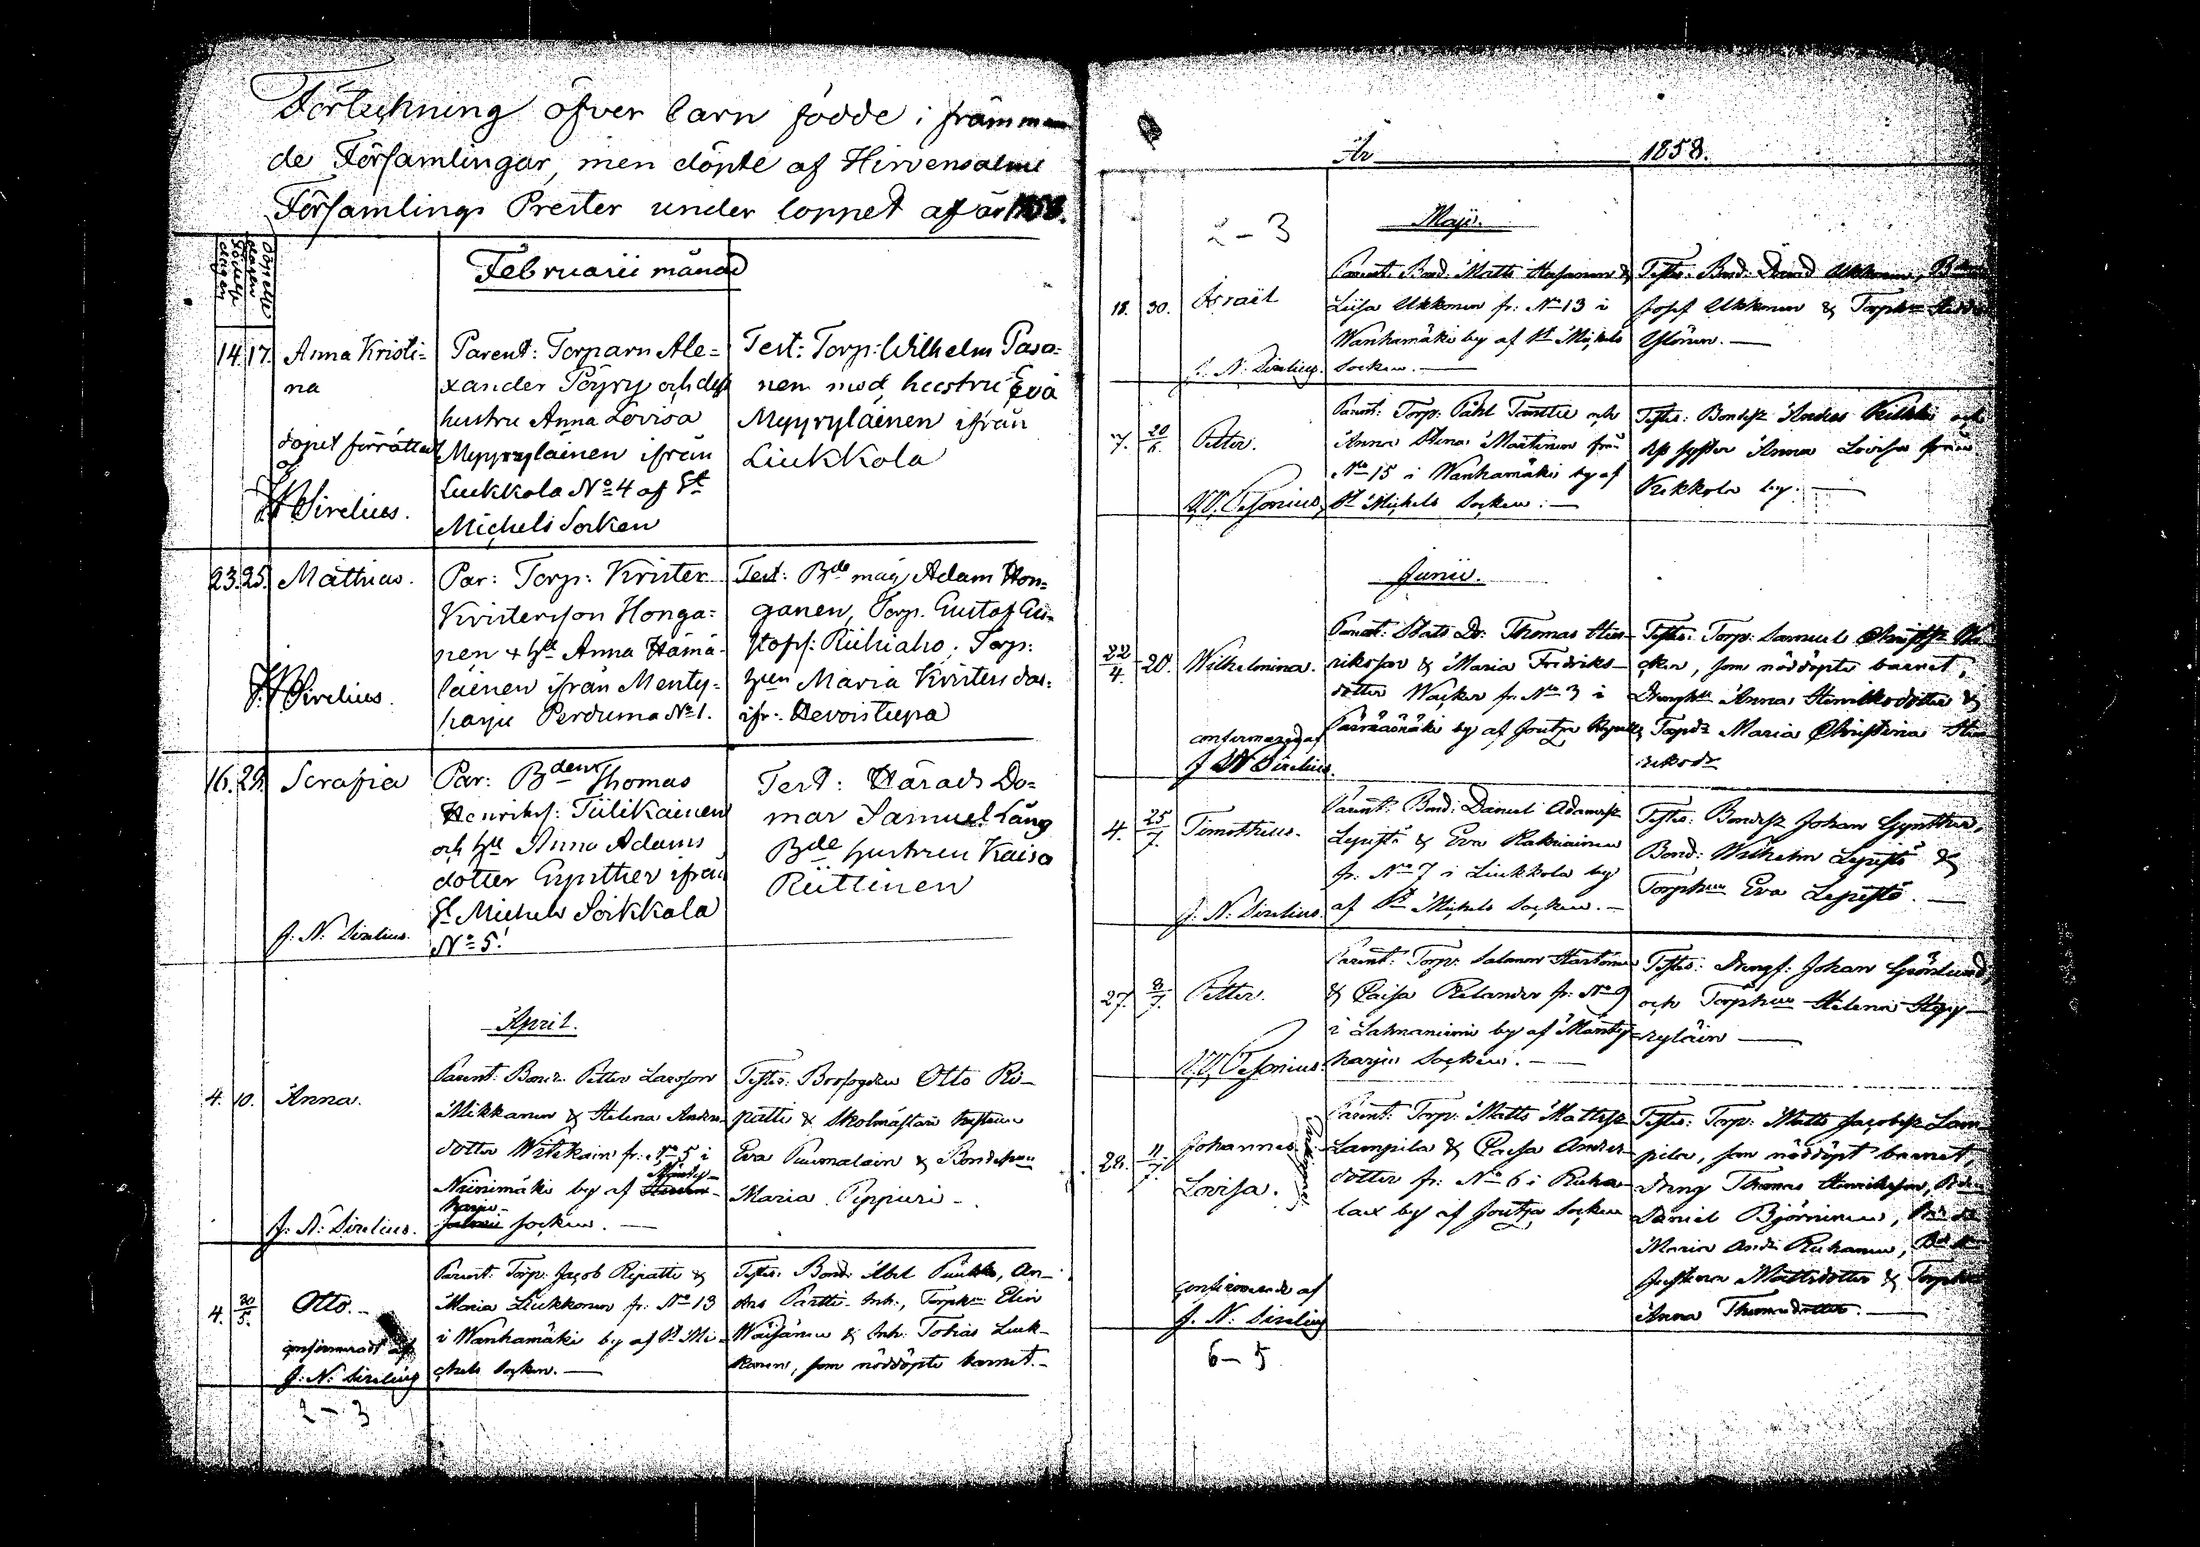 Förteckning öfver barn födde i främman
de Församlingar, men döpte af Hirvensalmi
Församlings Prester under loppet af år 1858.
Födelse
dagen
Döpelse
dagen
Februarii månad
14. 17. Anna Kristi=
na
döpet förrättad
af
J N Sirelius.
Parent: Torparn Ale=
xander Pöyry och dess
hustru Anna Lovisa
Myyryläinen ifrån
Liukkola No 4 af St
Michels Socken
Test: Torp: Wilhelm Paso=
nen med hustru Eva
Myyryläinen ifrån
Liukkola
23. 25. Mathias.
J N Sirelius.
Par: Torp: Krister
Kristersson Honga=
nen & hu Anna Hämä=
läinen ifrån Menty=
harju Perduma No 1.
Test: Bde måg Adam Hon=
ganen, Torp. Gustaf Gu=
stafs: Riihiaho, Torp:
hun Maria Kristers dot:
ifr: Hevoistupa
16. 28. Serafia
J: N: Sirelius.
Par: Bden Thomas
Henriks: Tiilikainen
och hu Anna Adams
dotter Gynther ifrån
St Michels Soikkala
No 5.
Test: Härads Do=
mar Samuel Lång
Bde hustrun Kaisa
Riittinen
April.
4. 10. Anna.
J: N: Sirelius.
Parent: Bond: Petter Larsson
Mikkanen & Helena Anders
dotter Witikain fr: No 5 i
Niinimäki by af Mänty-
harju socken.
Testes: Brofogden Otto Ri-
patti & Skolmästare hustrun
Eva Puumalain & Bondehun
Maria Pippuri
4. 30/5. Otto.
confirmeradt af
J: N: Sirelius
Parent: Torp: Jacob Ripatti &
Maria Liukkonen fr: No 13
i Wanhamäki by af St Mi-
chels Socken.
Testes: Bond: Abel Pukki, An-
ders Partti Inh., Torphn Elin
Wäisänen & Inh: Tobias Liuk-
konen, som nöddöpte barnet.
2 - 3
År 1858.
2 - 3
Maji.
18. 30. Israël
J. N. Sirelius.
Parent: Bond: Matts &
Liisa Ukkonen fr: No 13 i
Wanhamäki by af St Michels
Socken.
Testes: Bond: David Ukkonen,
Josef Ukkonen &
Ylönen.
7. 20/6. Petter.
Parent: Torp: Påhl och
Anna Stina Martinen från
No 15 i Wanhamäki by af
St Michels Socken.
Testes: Bondes: Anders och
dess syster Anna Lovisa från
by.
Junii.
22/4. 20. Wilhelmina.
confirmerad af
J N Sirelius.
Parent: Stats Dr: Thomas Hen-
riksson & Maria Fredriks-
dotter Wacker fr: No 3 i
by af Joutsa
Testes: Torp: Samuel
som nöddöpte barnet,
Anna Henriksdotter &
Maria Christina Hen
riksdr
4. 25/7. Timotheus.
J. N. Sirelius.
Parent: Bond: Daniel Adamss:
Lepistö & Eva
fr: No 7 i Liukkola by
af St Michels Socken.
Testes: Bondes: Johan Gynther,
Bond: Wilhelm Lepistö &
Torphun Eva Lepistö.
27. 8/7. Petter.
Parent: Torp: Salomon
& Caisa Relander fr: No 9
i Lahnaniemi by af Mänty-
harju Socken.
Testes: Drengs: Johan Grönlund,
och Torphun Helena Myy-
ryläin
28. 11/7. Johannes
Lovisa.
confirmerade af
J. N. Sirelius
Parent: Torp: Matts Mattss:
Lampila & Caisa Anders
dotter fr: No 6 i Ruha-
lax by af Joutsa Socken
Testes: Torp: Matts Jacobss: Lam
pila, som nöddöpt barnet,
Dreng Thomas Henriksson,
Daniel Björninen,
Maria
Justina Mattsdotter &
Anna Thomasdotter.
6 - 5